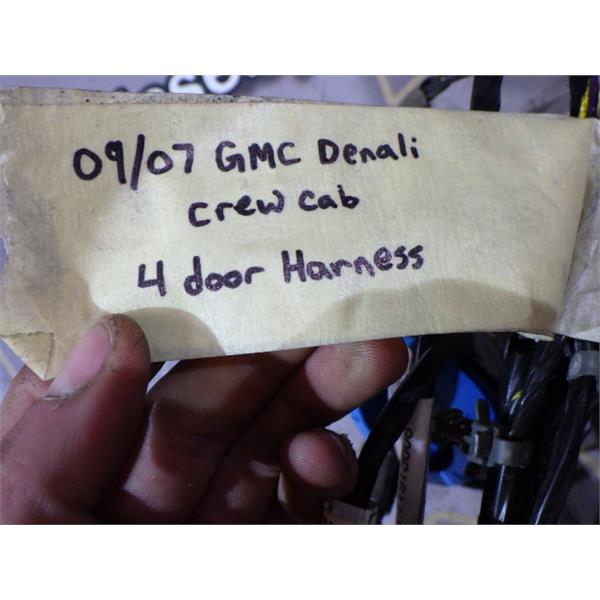 09/07 GMC Denali
crew cab
4 door Harness